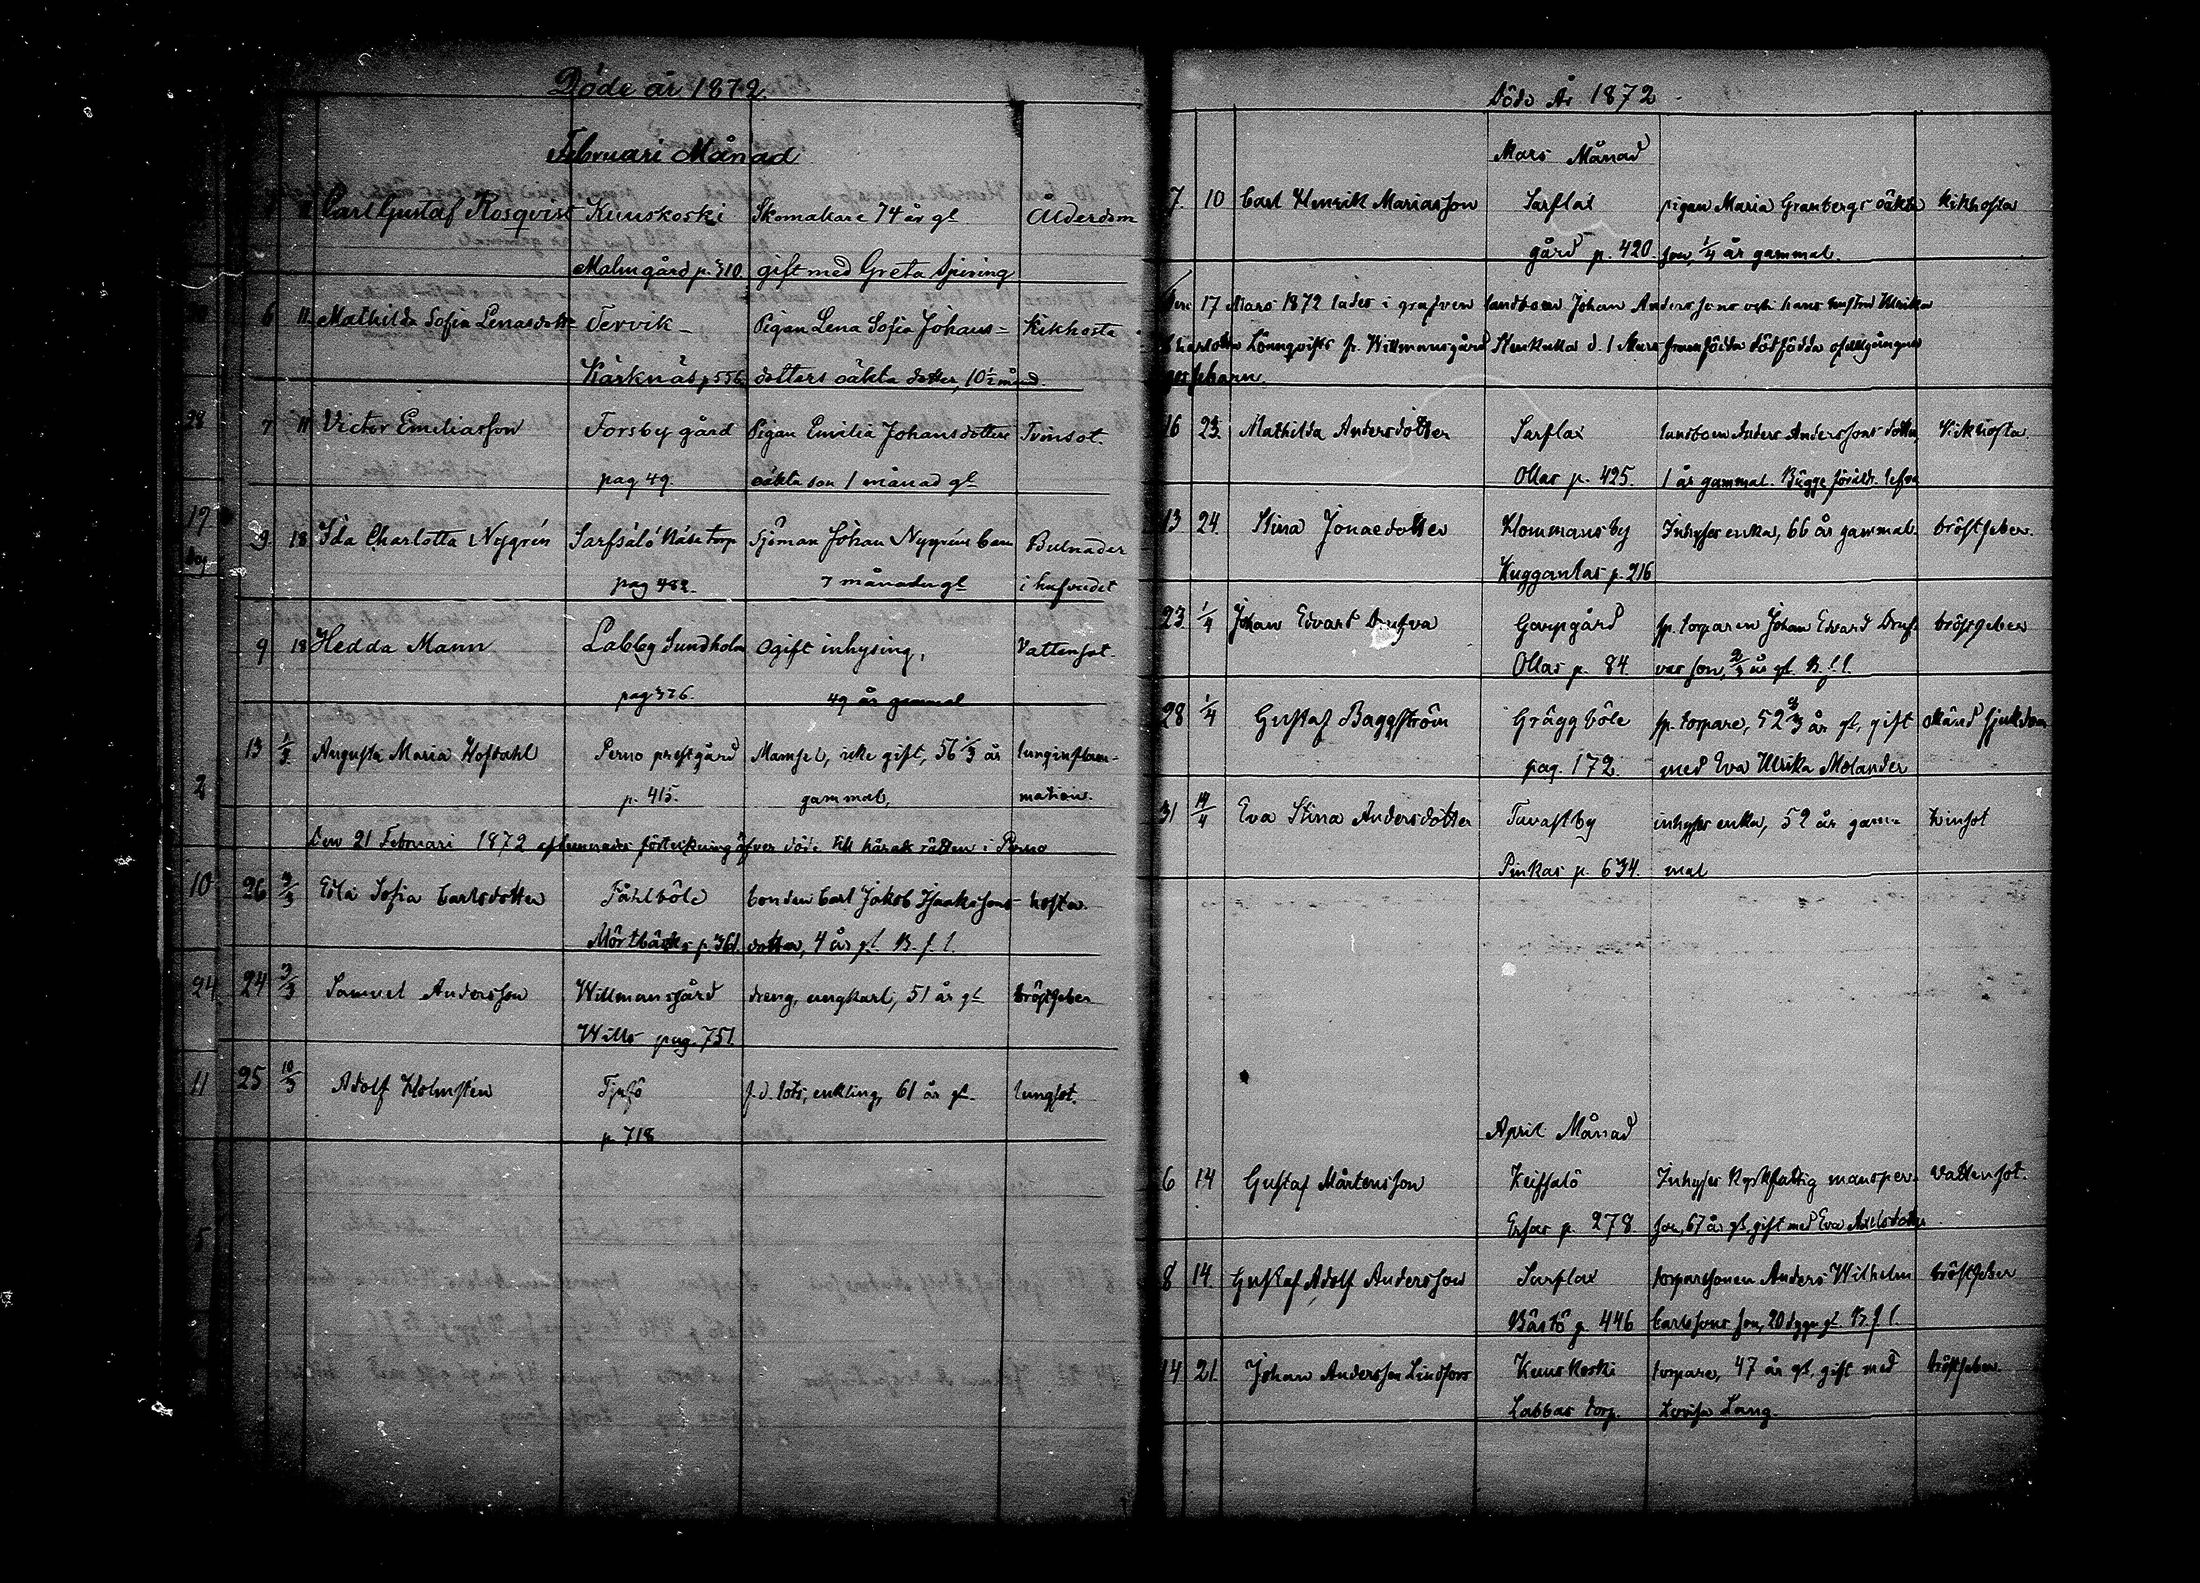 Döde år 1872.
Februari Månad
11 Carl Gustaf Rosqvist Kuuskoski Skomakare 74 år gl Ålderdom
Malmgård p. 310 gift med Greta
6 11 Mathilda Sofia Lenasdott- Tervik- Pigan Lena Sofia Johans- Kikhosta
Kärknäs p 556 dotters oäkta dotter, 10 1/2 månd.
28 7 11 Victor Emiliasson Forsby gård Pigan Emilia Johansdotters Tvinsot.
pag 49. oäkta son 1 månad gl
19 9 18 Ida Charlotta Nygrén Sarfsalö Näse torp Sjöman Johan Nygréns barn Bulnader
pag 482. 7 månader gl i hufvudet
9 18 Hedda Mann Labby Sundholm Ogift inhysing, Vattensot.
pag 376. 49 år gammal
13 1/3 Augusta Maria Hofdahl Perno prestgård Mamsel, icke gift, 56 1/3 år lunginflam-
2 p. 415. gammal, mation.
Den 21 Februari 1872 aflemnades förteckning öfver döde till härads rätten i Perno
10 26 3/3 Edla Sofia Carlsdotter Fåhlböle bonden Carl Jakob Isakssons hosta.
Mörtbäcks p. 361. dotter, 4 år gl. B. f. l.
24 24 3/3 Samuel Andersson Willmansgård dreng, ungkarl, 51 år gl bröstfeber
Wills pag. 751.
11 25 10/3 Adolf Holmstén Tjusö f. d. lots, enkling, 61 år gl. lungsot.
p. 718
5
Döde År 1872
Mars Månad
7. 10 Carl Henrik Mariasson Sarflax pigan Maria Granbergs oäkta kikhosta
gård p. 420. son, 1/4 år gammal.
Den 17 Mars 1872 lades i grafven landboen Johan Anderssons och hans hustru Ulrika
Charlotta Lönnqvists fr. Willmansgård d. 1 Mars framfödda dödfödda ofullgångna
gossebarn.
16 23. Mathilda Andersdotter Sarflax landboen Anders Anderssons dotter, Kikhosta
Ollas p. 425. 1 år gammal. Bägge föräldr. lefva
13 24. Stina Jonaedotter Hommansby Inhyses enka, 66 år gammal. bröstfeber.
Kuggantas p. 216
23. 1/4 Johan Edvard Drufva Garpgård sp. torparen Johan Edvard Druf- bröstfeber
Ollas p. 84. vas son, 2/3 år gl. B. f. l.
28 1/4 Gustaf Baggström Gräggböle sp. torpare, 52 2/3 år gl, gift okänd sjukdom
pag. 172. med Eva Ulrika Molander
31 14/4 Eva Stina Andersdotter Tavastby inhyses enka, 52 år gam- tvinsot
Pinkas p. 634. mal
April Månad
6 14 Gustaf Mårtensson Keissalö Inhyses mansper- vattensot.
p. 278. son, 67 år gl, gift med Eva Axelsdotter
8 14. Gustaf Adolf Andersson Sarflax torparesonen Anders Wilhelm bröstfeber
Båstö p. 446 Carlssons son, 20 dygn gl. B. f. l.
14 21. Johan Andersson Lindfors Kuuskoski torpare, 47 år gl, gift med bröstfeber.
Labbas torp. Lovisa Lang.